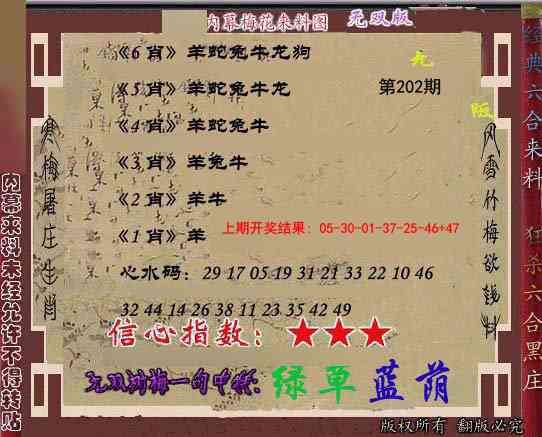 内幕梅花来料图 无双版
《6肖》羊蛇兔牛龙狗
九
《5肖》羊蛇兔牛龙 第202期
版
《4肖》羊蛇兔牛
《3肖》羊兔牛
《2肖》羊牛
《1肖》羊
上期开奖结果：05-30-01-37-25-46+47
心水码：29 17 05 19 31 21 33 22 10 46
32 44 14 26 38 11 23 35 42 49
信心指数：★★★
绿草蓝荫
版权所有 翻版必究
寒梅屠庄生肖
风雪竹梅欲钱料
内幕来料未经允许不得转贴
经典六合来料
狂杀六合黑庄